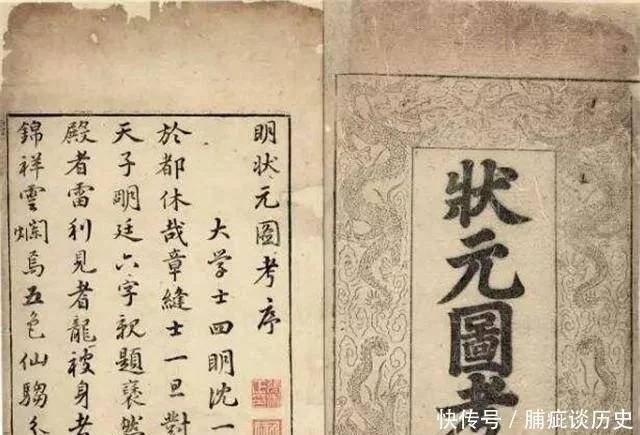 狀元圖考
明状元圖考序
大学士四明沈一
於都休哉章縫士一旦對
天子明廷六字親題褒然
殿者雷利見者龍被身者
錦祥雲爛焉五色仙騶
快传号／脯疵谈历史